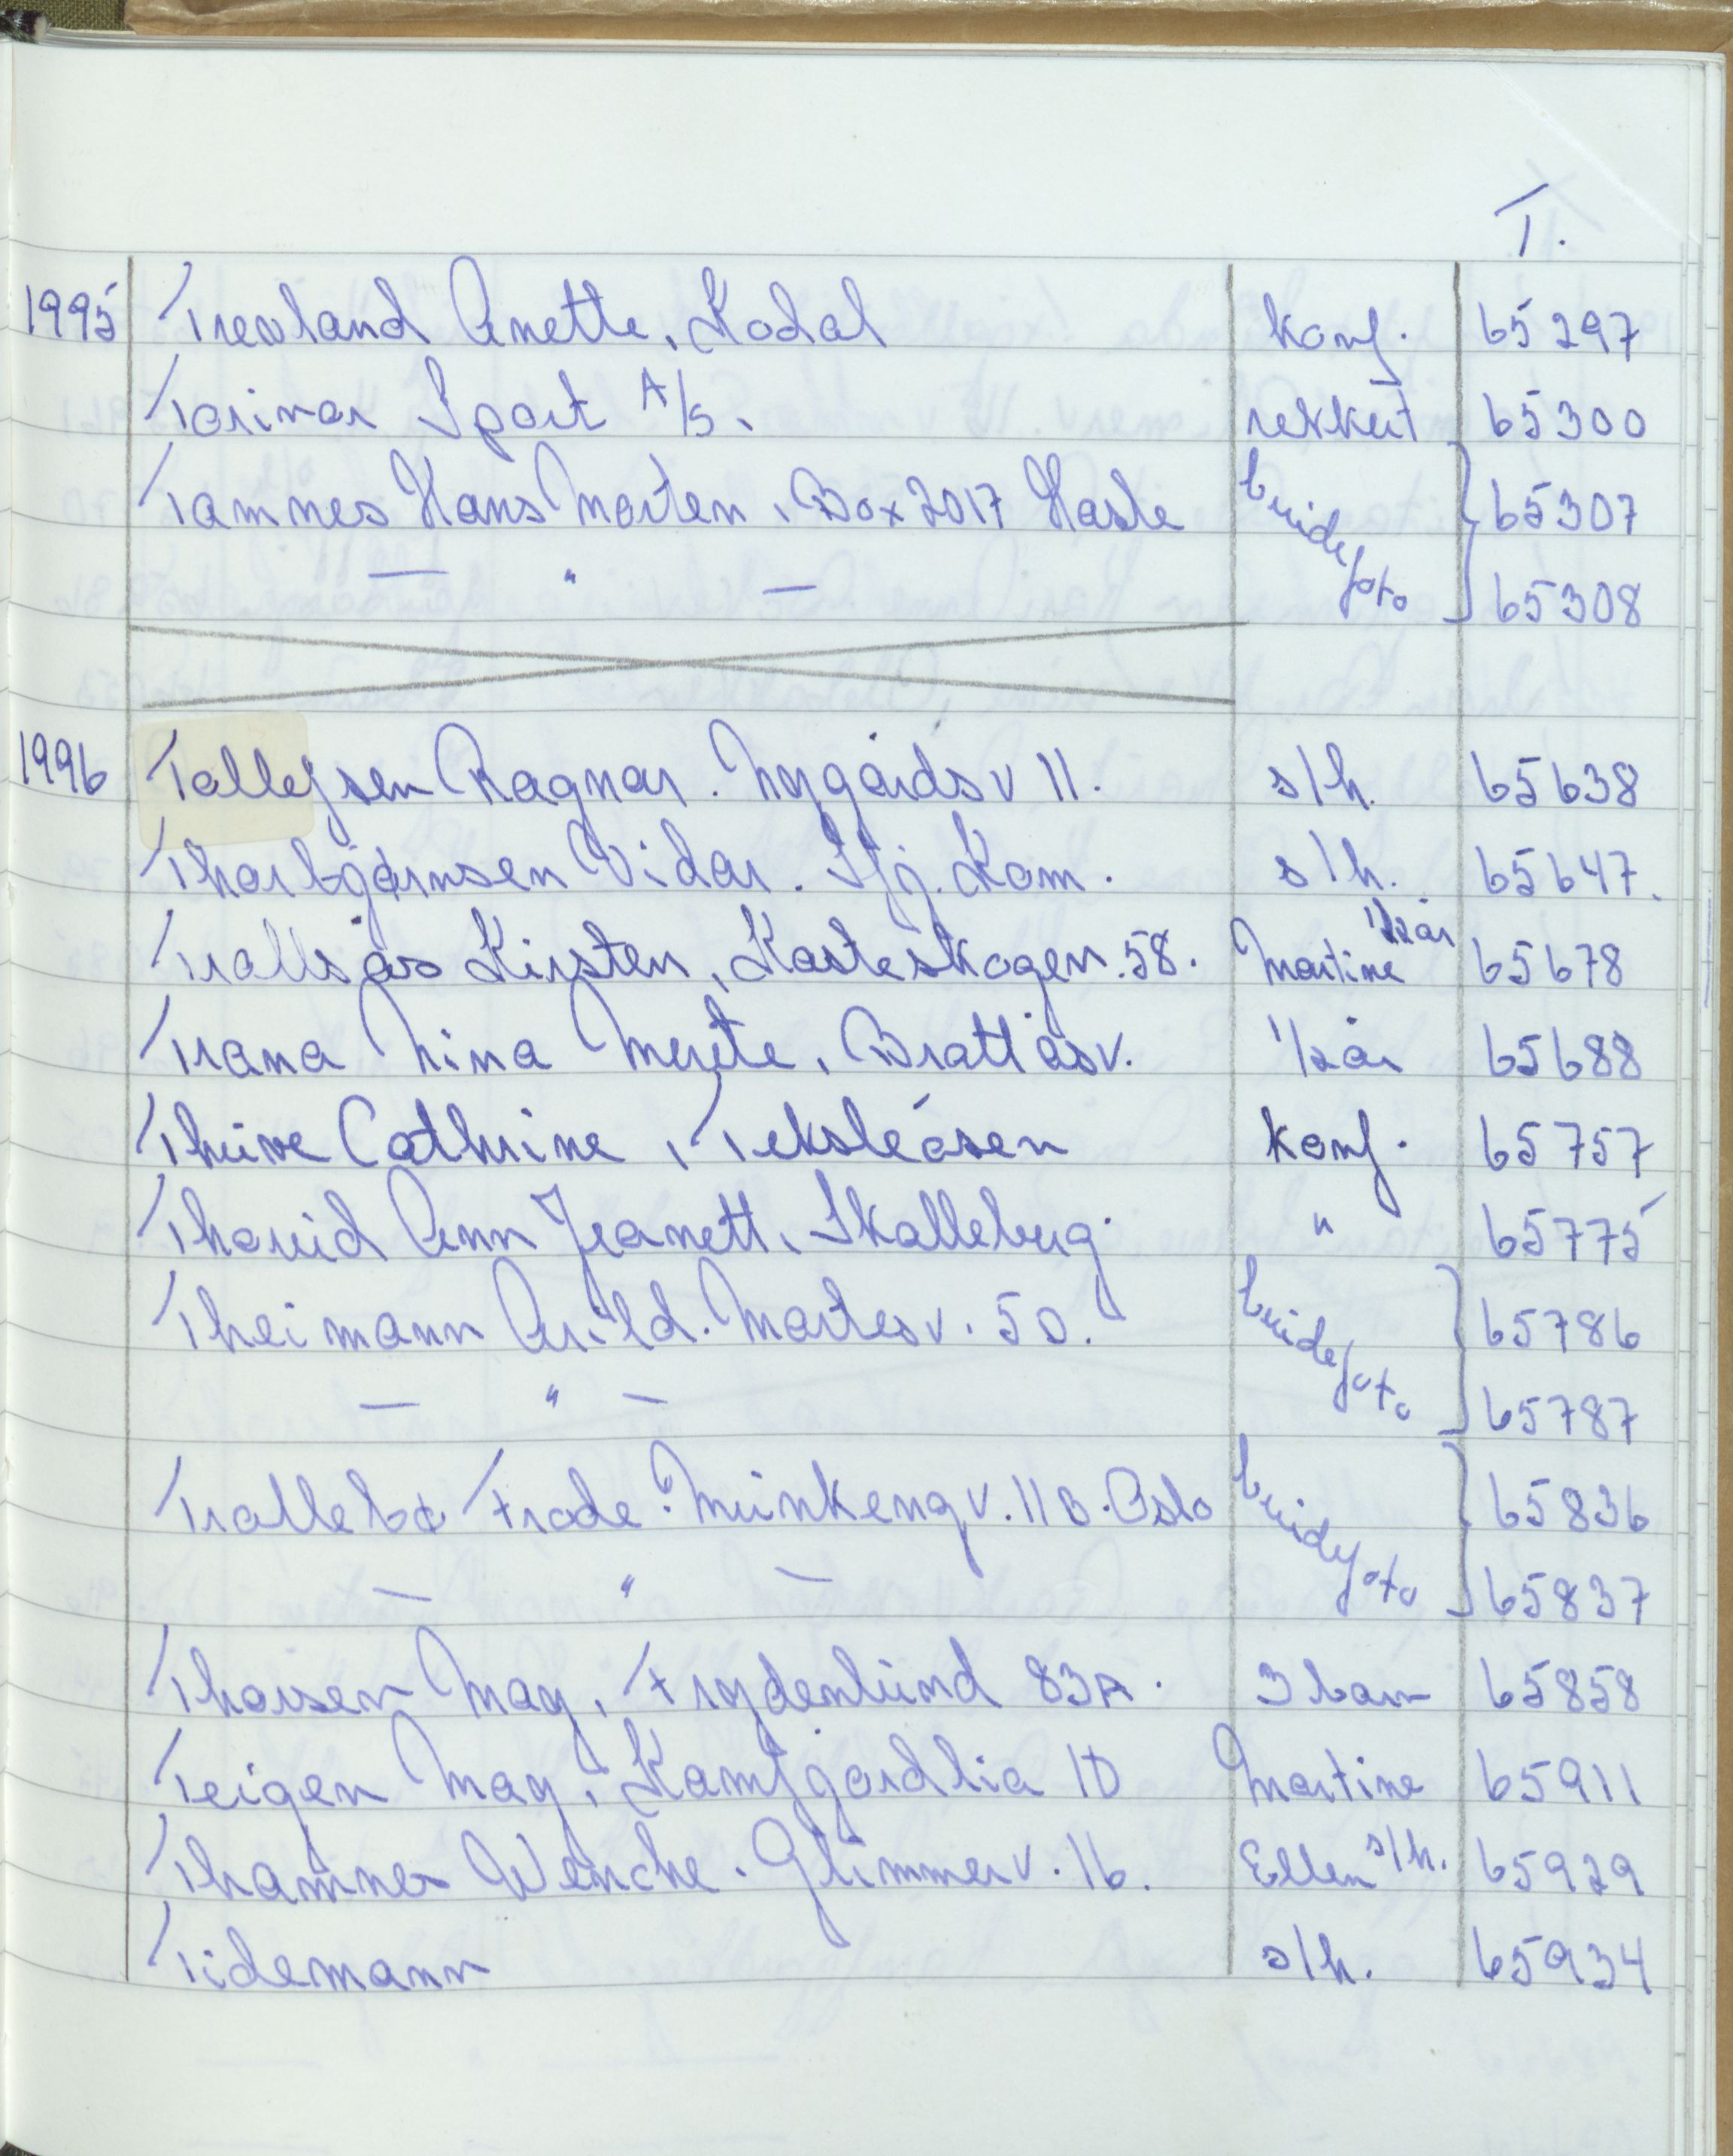 T.
1995 Trevland Anette, Kodal konf. 65297
Torimar Sport A/S. rekkeit 65300
Tamnes Hans Morten, Box 2017 Hasle brudefoto 65307
— " — 65308
1996 Tollefsen Ragnar. Nygårdsv 11. s/h. 65638
Thorbjørnsen Vidar. Sfj. Kom. s/h. 65647.
Trollsås Kirsten, Kasteskogen. 58. Martine 1/2 år 65678
Trana Nina Merete, Brattåsv. 1/2 år 65688
Thune Cathrine, Veksleåsen konf. 65757
Thorud Ann Jeanett, Skalleberg. " 65775
Theimann Arild. Mortesv. 50. brudefoto 65786
— " — 65787
Trollebø Frode. Munkengv. 11 B. Oslo brudefoto 65836
— " — 65837
Thorsen May, Frydenlund 83A. 3 barn 65858
Teigen May, Kamfjordlia 10 Martine 65911
Thamnes Wenche. Glimmerv. 16. Ellen s/h. 65929
Tidemann s/h. 65934